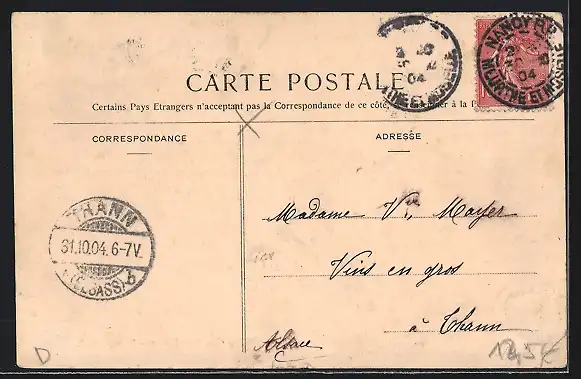 CARTE POSTALE
Certains Pays Etrangers n'acceptant pas la Correspondance de ce côté, à la
CORRESPONDANCE
ADRESSE
NANCY R.P.
MEURTHE ET MOSELLE
04
04
MEURTHE ET MOSELLE
THANN
31.10.04. 6-7V.
(ELSASS) b
Madame Vve Mayer
Vins en gros
à Thann
Alsace
D